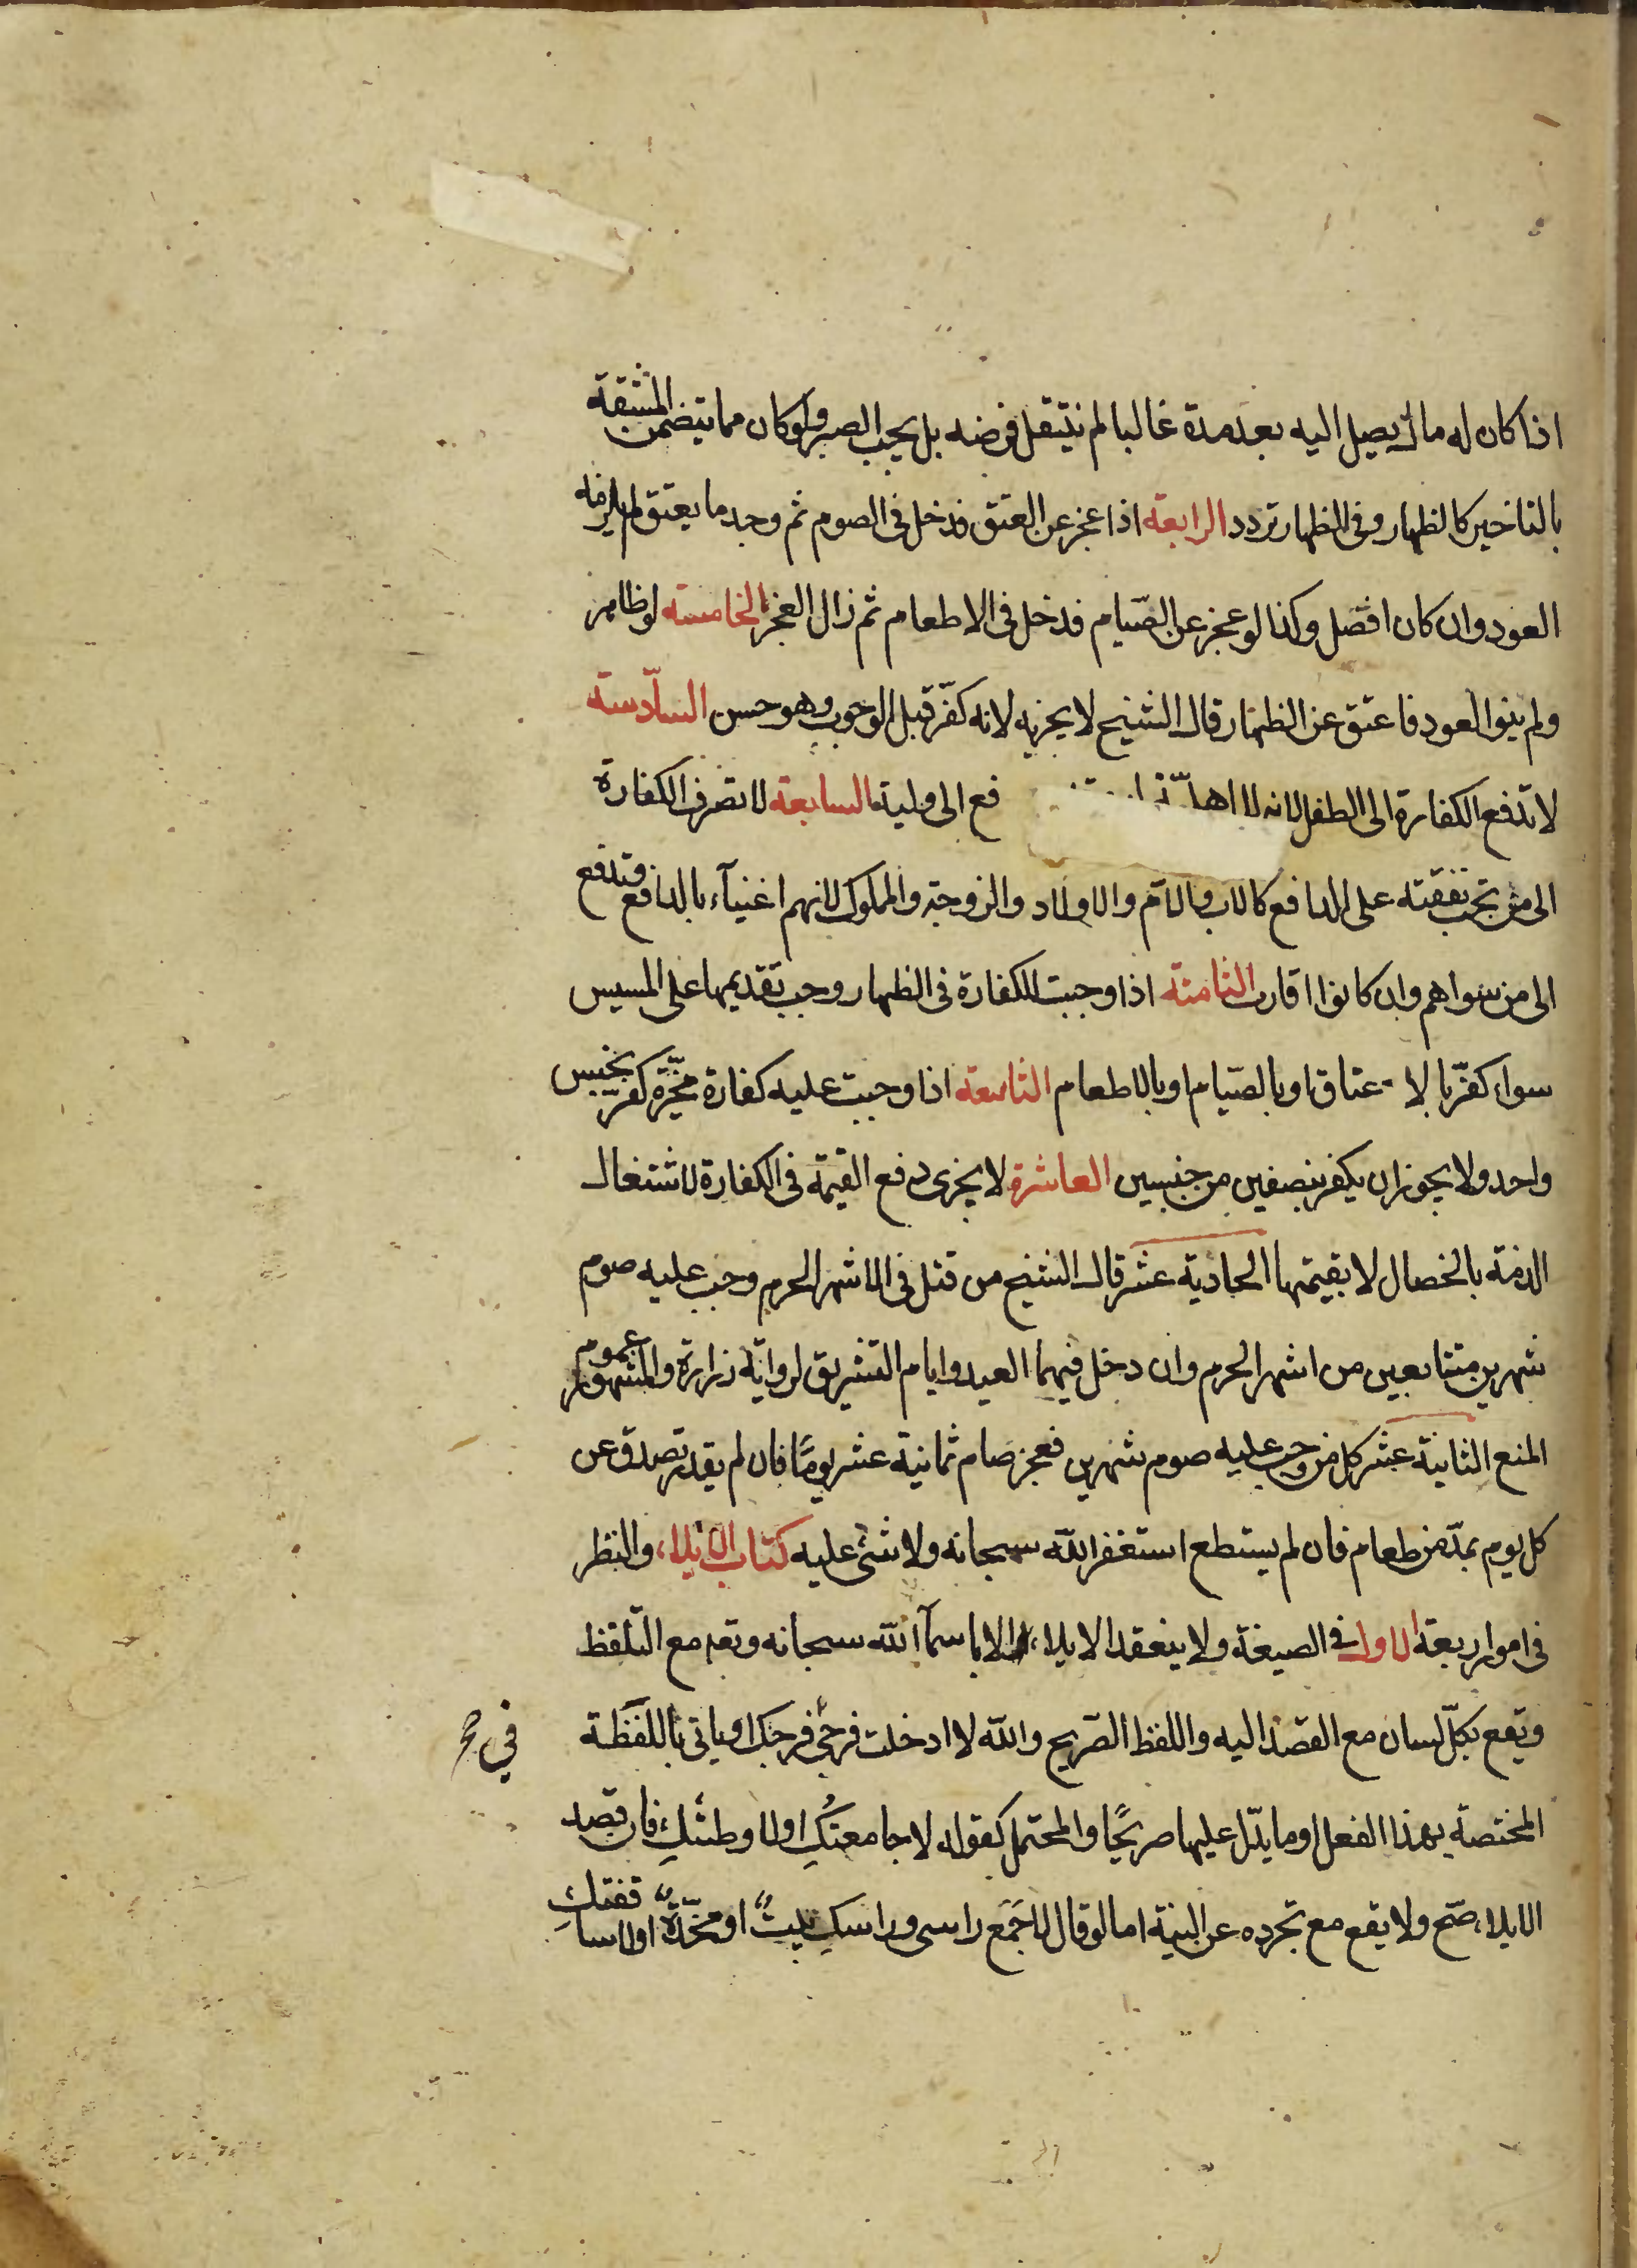 اذا كان له مال يصل اليه بعد مدة غالبا لم ينتقل فرضه بل يجب الصبر ولو كان مما يتضمن المشقة
بالتاخير كالظهار وفى الظهار تردد الرابعة اذا عجز عن العتق فدخل فى الصوم ثم وجد ما يعتق لم يلزمه
العود وان كان افضل وكذا لو عجز عن الصّيام فدخل فى الاطعام ثم زال العجز الخامسة لو ظاهر
ولم ينو العود فاعتق عن الظهار قال الشيخ لا يجزيه لانه كفّر قبل الوجوب وهو حسن السّادسة
لا تدفع الكفارة الى الطفل لانه لا اهلـّيـ فع الى وليه السابعة لا تصرف الكفارة
الى من تجب نفقته على الدافع كالاب والامّ والاولاد والزوجة والمملوك لانهم اغنيآء بالدافع وتدفع
الى من سواهم وان كانوا اقارب الثامنة اذا وجبت الكفارة فى الظهار وجب تقديمها على المسيس
سواء كفّر بالا عتاق او بالصّيام او بالاطعام التاسعة اذا وجبت عليه كفارة مخيّرة كفّر بجنس
واحد ولا يجوز ان يكفر بنصفين من جنسين العاشرة لا يجزى دفع القيمة فى الكفارة لاشتغال
الذمة بالخصال لا بقيمتها الحادية عشر قال الشيخ من قتل فى الاشهر الحرم وجب عليه صوم
شهرين متتابعين من اشهر الحرم وان دخل فيهما العيد وايام التشريق لرواية زرارة والمشهور عموم
المنع الثانية عشر كل من وجب عليه صوم شهرين فعجز صام ثمانية عشر يومًا فان لم يقدر تصدق عن
كل يوم بمدّ من طعام فان لم يستطع استغفر الله سبحانه ولا شئ عليه كتاب الايلاء والنظر
فى امور اربعة الاول فى الصيغة ولا ينعقد الايلاء الا باسمآء الله سبحانه وتعه مع التّلفظ
ويقع بكلّ لسان مع القصد اليه واللفظ الصّريح والله لا ادخلت فرجى فرجك او ياتى باللفظة
فى صح
المختصة بهذا الفعل او ما يدّل عليها صريحًا والمحتمل كقوله لا جامعتكِ او لا وطئتكِ فان قصد
الايلاء صّح ولا يقع مع تجرده عن النية اما لو قال لا جَمَع راسى وراسكِ بيتٌ او مخدّةٌ او لا ساقفتكِ